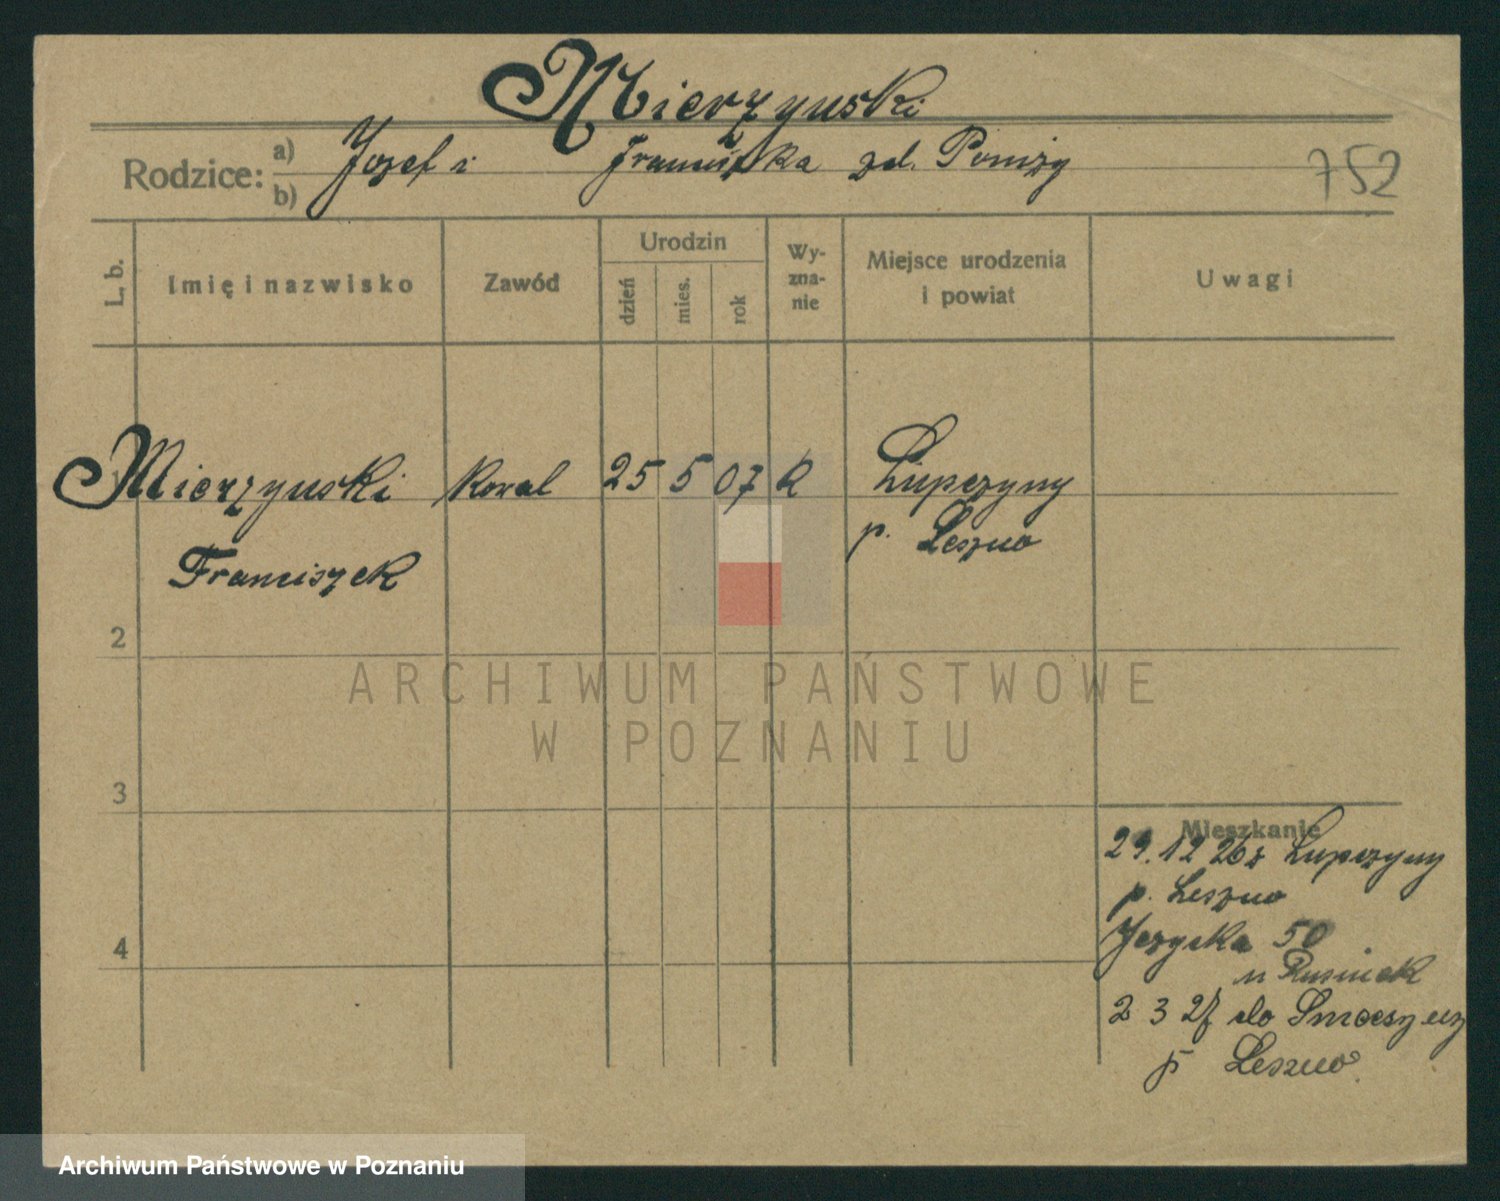 Mierzynski
Rodzice: a) b) Jozef i Franciszka zd. Ponizy
752
L. b.
Imię i nazwisko
Zawód
Urodzin
dzień
mies.
rok
Wy-
zna-
nie
Miejsce urodzenia
i powiat
Uwagi
Mierzynski Kowal 25 5 07 K Lupczyny
p. Leszno
Franciszek
2
ARCHIWUM PAŃSTWOWE
W POZNANIU
3
Mieszkanie
29.12 26 z Lupczyny
p. Leszno
4
50
u Rusinek
2 3 27 do
p Leszno
Archiwum Państwowe w Poznaniu